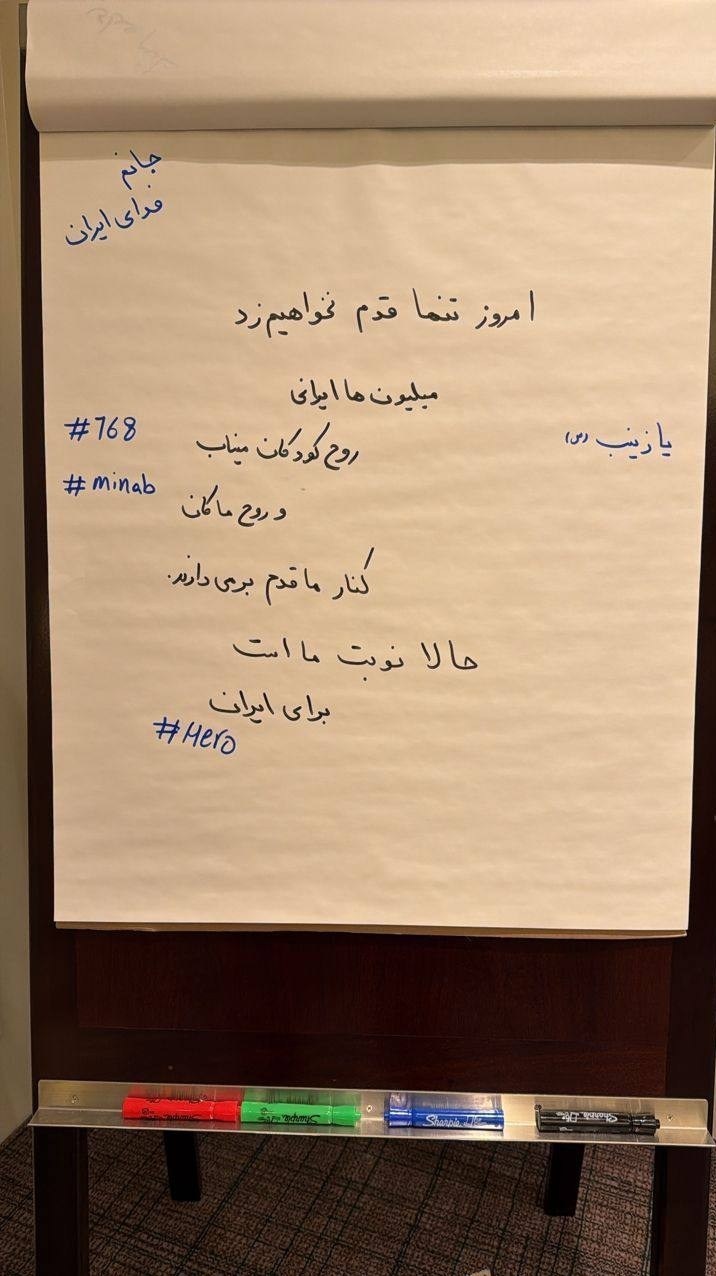 جانم
فدای ایران
امروز تنها قدم نخواهیم زد
میلیون ها ایرانی
روح کودکان میناب
و روح ماکان
کنار ما قدم برمی دارند.
حالا نوبت ما است
برای ایران
#168
#minab
یا زینب (س)
#Hero
Sharpie
Sharpie
Sharpie
Sharpie